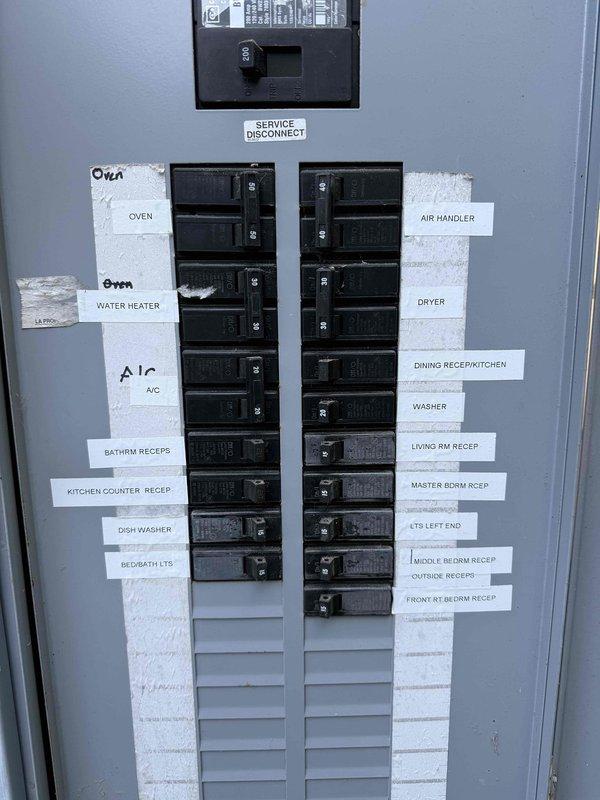 200
SERVICE
DISCONNECT
Oven
OVEN
50
50
40
40
AIR HANDLER
Oven
WATER HEATER
LA PRO
30
30
30
30
DRYER
A/C
A/C
20
20
DINING RECEP/KITCHEN
20
WASHER
BATHRM RECEPS
15
LIVING RM RECEP
KITCHEN COUNTER RECEP
15
MASTER BDRM RCEP
DISH WASHER
15
15
LTS LEFT END
BED/BATH LTS
15
15
MIDDLE BEDRM RECEP
OUTSIDE RECEPS
15
FRONT RT.BEDRM RECEP